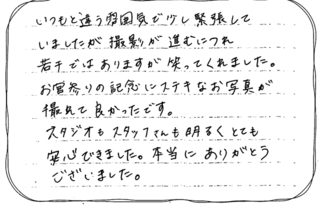 いつもと違う雰囲気で少し緊張して
いましたが撮影が進むにつれ
若干ではありますが笑ってくれました。
お宮参りの記念にステキなお写真が
撮れて良かったです。
スタジオもスタッフさんも明るくとても
安心できました。本当にありがとう
ございました。